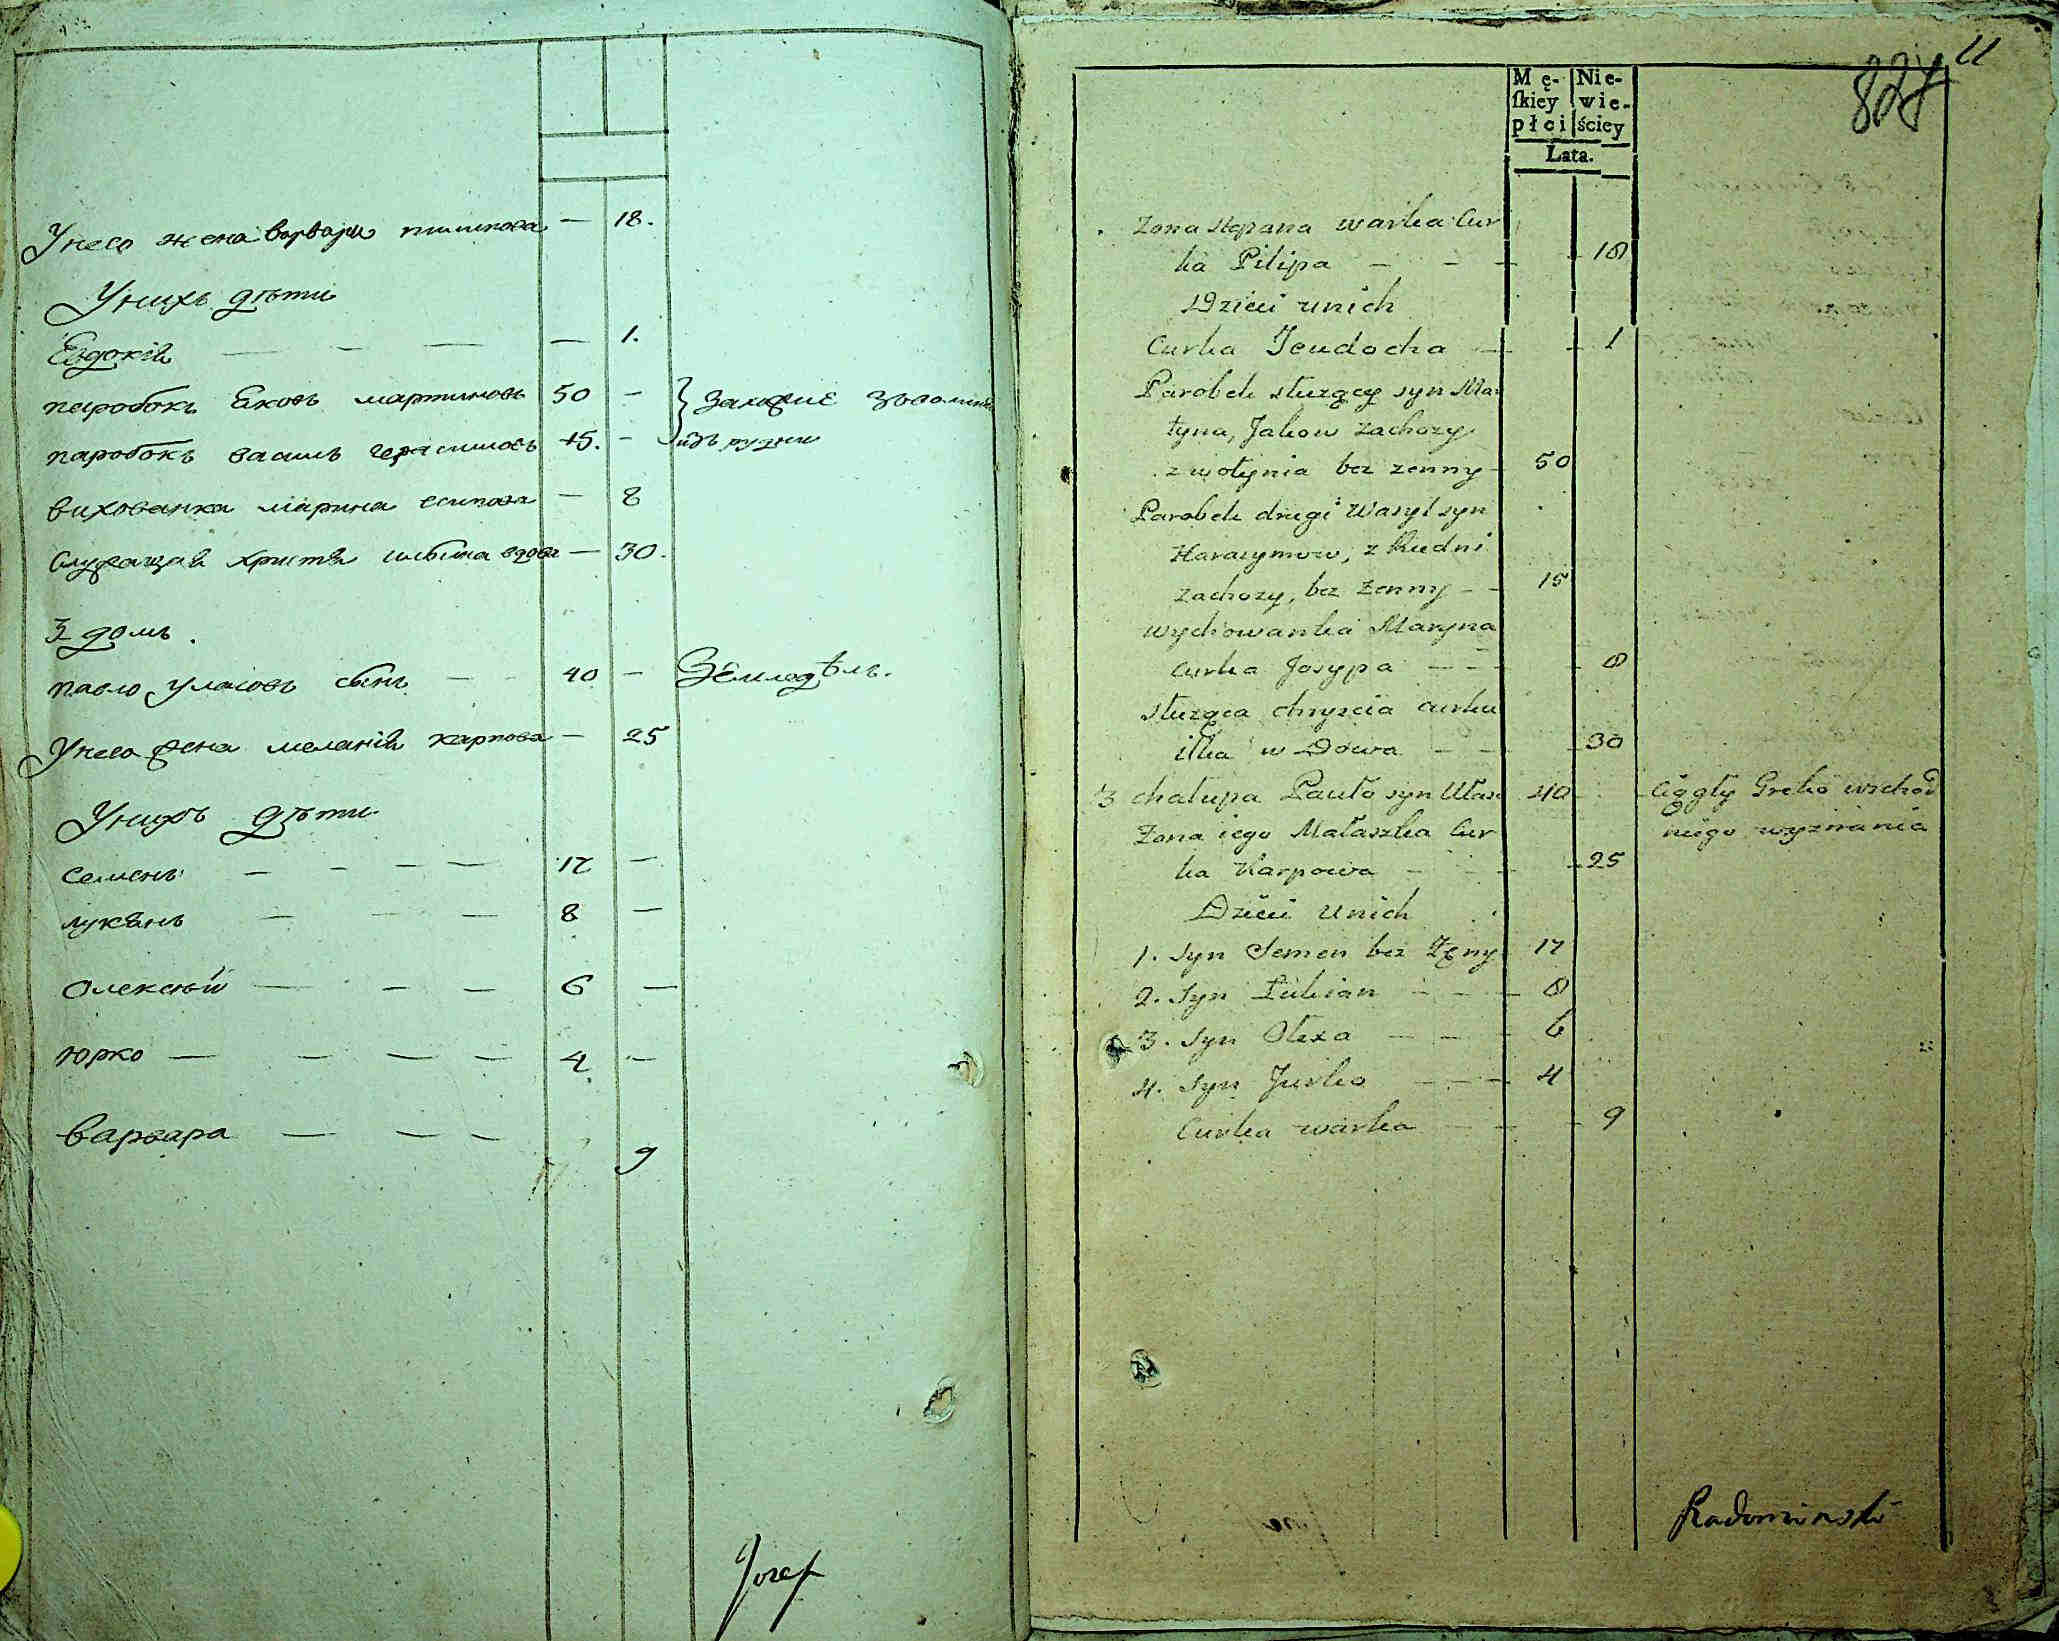 У него жена варвара пилипова — 18.
У нихъ дѣти
Евдокія — — — — 1.
паробокъ Яковъ мартиновъ 50 — захожіе зволыня
паробокъ василь герасимовъ 15. — изъ рудни
вихованка марина есипова — 8
служащая христя ильина вдова — 30.
3 домъ.
павло уласовъ сынъ — — 40 — Земледѣль.
У него жена меланія карпова — 25
У нихъ дѣти
семенъ — — — — 17 —
лукянъ — — — 8 —
олексѣй — — — 6 —
юрко — — — — 4 —
варвара — — — 9
Jozef
11
827
Mę- Nie-
ſkiey wie-
płci ściey
Lata.
Zona Stepana warka Cur
ka Pilipa — — — 18
Dzieci unich
Curka Jeudocha — — 1
Parobek służący syn Mar
tyna, Jakow zachozy
z wołynia bez zenny 50
Parobek drugi Wasyl syn
Harasymow, z Rudni
zachozy, bez zenny — — 15
wychowanka Maryna
Curka Josypa — — — 8
służąca chryscia curka
ilka wDowa — — 30
3 chałupa Pauło syn Ułas 40 — Ciągły Greko wschod
Zona iego Małaszka Cur niego wyznania
ka Karpowa — — — 25
Dzieci unich
1. Syn Semen bez Zęny 17
2. Syn Łukian — — — 8
3. Syn Olexa — — — 6
4. Syn Jurko — — — 4
Curka warka — — — 9
Radominski